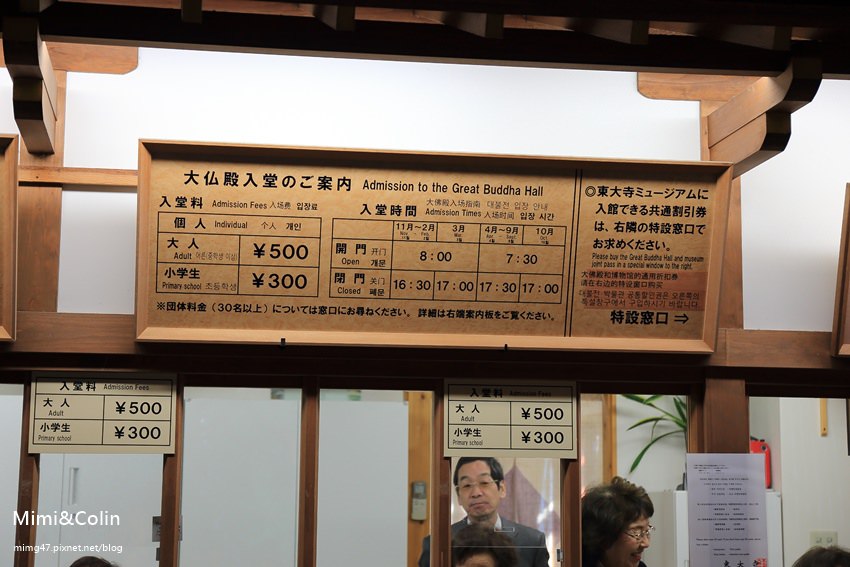 大仏殿入堂のご案内 Admission to the Great Buddha Hall
入堂料 Admission Fees 入场费 입장료
個人 Individual 个人 개인
大人 Adult 어른(중학생 이상) ¥500
小学生 Primary school 초등학생 ¥300
大佛殿入场指南 대불전 입장 안내
入堂時間 Admission Times 入场时间 입장 시간
11月~2月 3月 4月~9月 10月
開門 开门 Open 개문 8:00 7:30
閉門 关门 Closed 폐문 16:30 17:00 17:30 17:00
※団体料金(30名以上)については窓口にお尋ねください。 詳細は右端案内板をご覧ください。
◎東大寺ミュージアムに
入館できる共通割引券
は、右隣の特設窓口で
お求めください。
Please buy the Great Buddha Hall and museum
joint pass in a special window to the right.
大佛殿和博物馆的通用折扣券
请在右边的特设窗口购买
대불전·박물관 공통할인권은 오른쪽의
특설창구에서 구입하시기 바랍니다
特設窓口 ⇒
入堂料 Admission Fees
大人 Adult ¥500
小学生 Primary school ¥300
入堂料 Admission Fees
大人 Adult ¥500
小学生 Primary school ¥300
東大寺
Mimi&Colin
mimg47.pixnet.net/blog